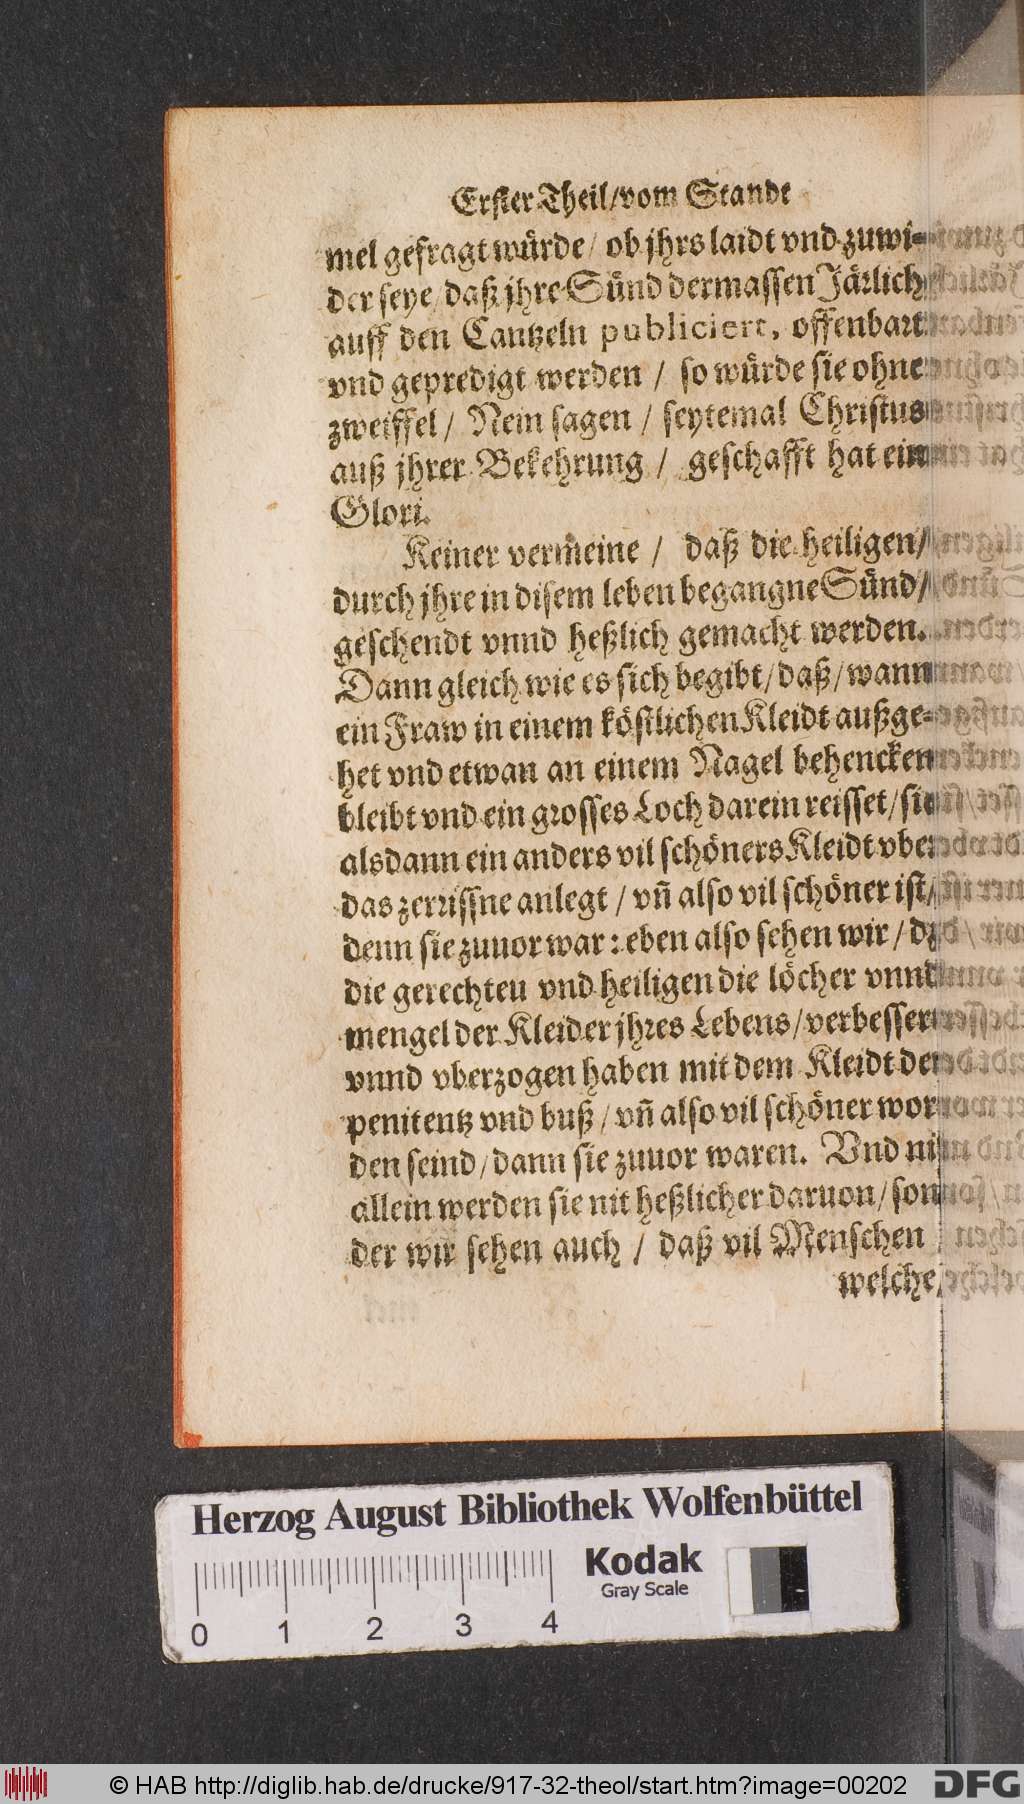 Erster Theil/vom Stande
mel gefragt würde/ ob jhrs laidt vnd zuwi-
der seye/daß jhre Sünd dermassen Järlich
auff den Cantzeln publiciert, offenbart
vnd gepredigt werden / so würde sie ohne
zweiffel/ Nein sagen / seytemal Christus
auß jhrer Bekehrung / geschafft hat ein
Glori.
Keiner vermeine / daß die heiligen/
durch jhre in disem leben begangne Sünd/
geschendt vnnd heßlich gemacht werden.
Dann gleich wie es sich begibt/daß/wann
ein Fraw in einem köstlichen Kleidt außge-
het vnd etwan an einem Nagel behencken
bleibt vnd ein grosses Loch darein reisset/sie
alsdann ein anders vil schöners Kleidt vber
das zerrissne anlegt / vñ also vil schöner ist/
denn sie zuuor war: eben also sehen wir / dz
die gerechteu vnd heiligen die löcher vnnd
mengel der Kleider jhres Lebens/verbessert
vnnd vberzogen haben mit dem Kleidt der
penitentz vnd buß / vñ also vil schöner wor
den seind/dann sie zuuor waren. Vnd nit
allein werden sie nit heßlicher daruon/son
der wir sehen auch / daß vil Menschen
welche
Herzog August Bibliothek Wolfenbüttel
Kodak
Gray Scale
0 1 2 3 4
© HAB http://diglib.hab.de/drucke/917-32-theol/start.htm?image=00202
DFG